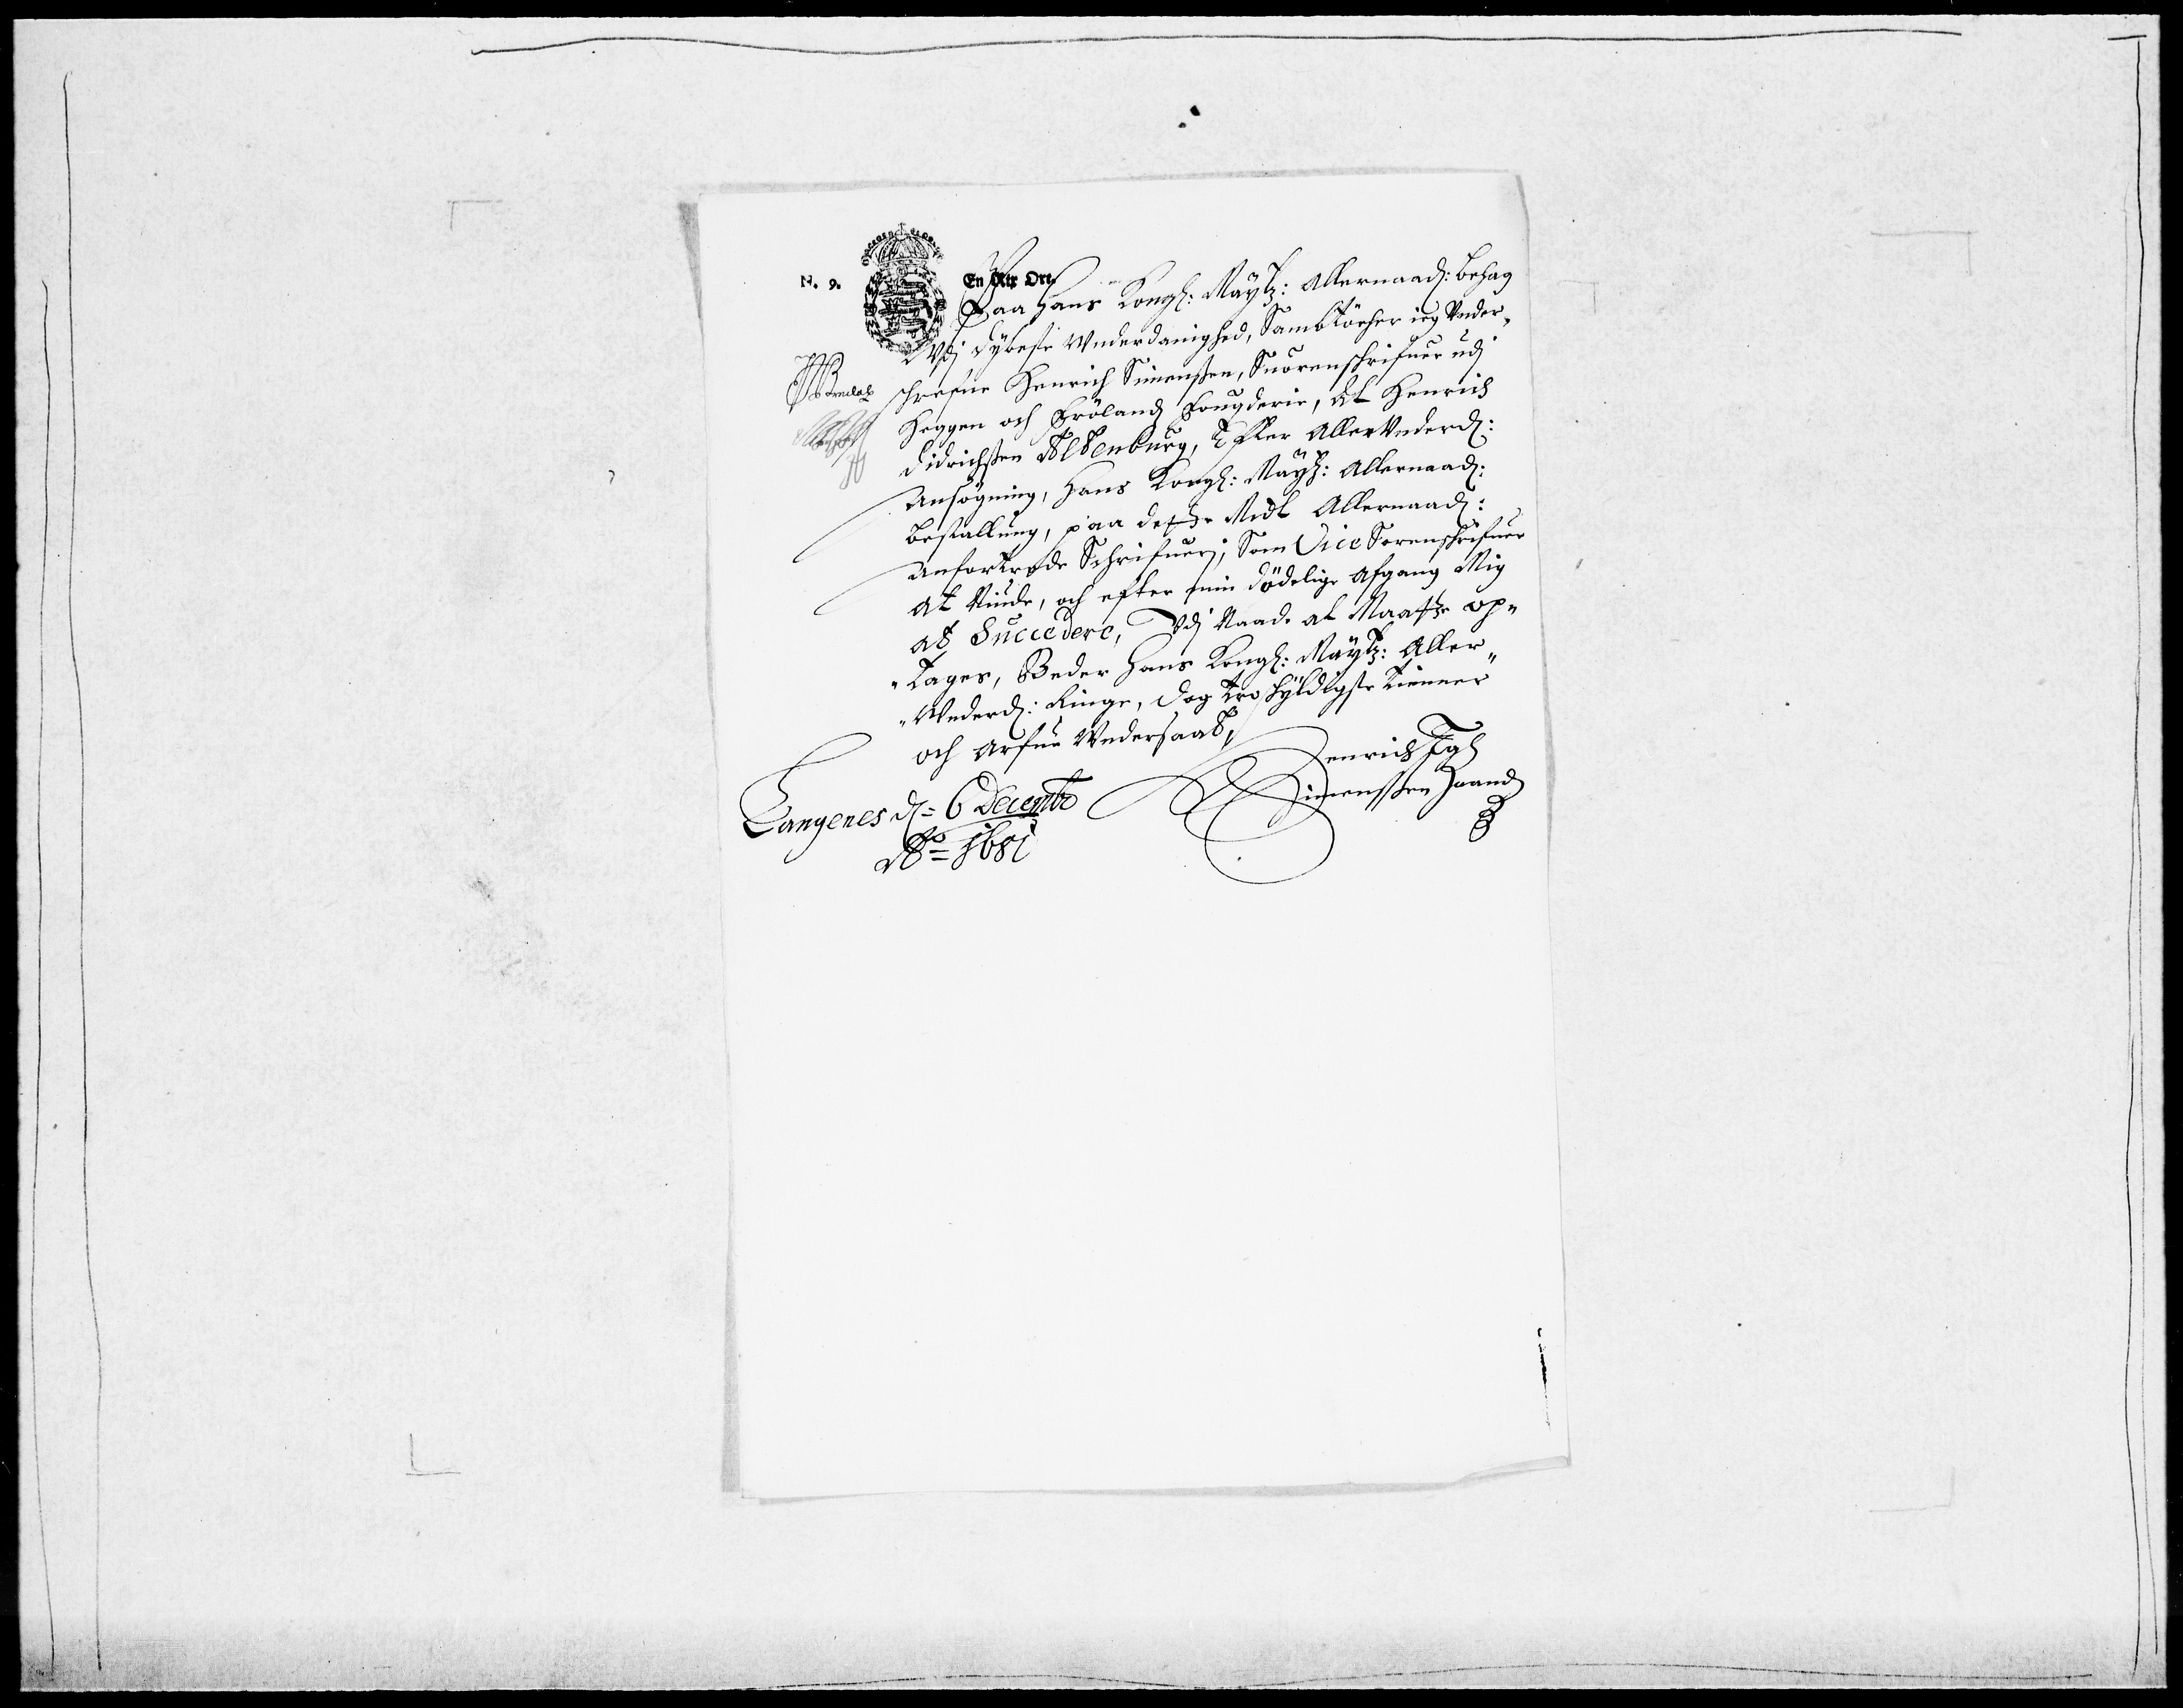 N. 9.
En Rix Ort.
Paa Hans Kongl: Maytz: Allernaad: behag
Vdj dybeste Vnderdanighed, Sambtöcher ieg Vnder,,
schrefne Henrich Simenssen, Suorenschrifuer udj
Heggen och Fröland Fougderie, At Henrich
Didrichssen Altenburg, Effter AllerVnderd:
Ansögning, Hans Kongl: Mayz: Allernaad:
Bestalling, paa dette Midt Allernaad:
Anfortrode Schrifuerj, Som Vice Sorenschrifuer
At Niude, och efter min dödelige Afgang Mig
at Succedere, Vdj Naade at Maatte op,,
,,Tages, Beder Hans Kongl: Maytz: Aller,,
,,Vnderd: Ringe, dog tro schyldigste tienner
och Arfue Vndersaat,
Langenes d= 6 Decembr
Ao= 1681
Henrich
Simenssen Haand